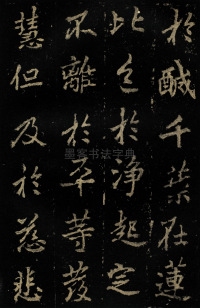 於醎千葉在蓮
比丘於净起定
不離於平等發
慧但及於慈悲
墨客书法字典